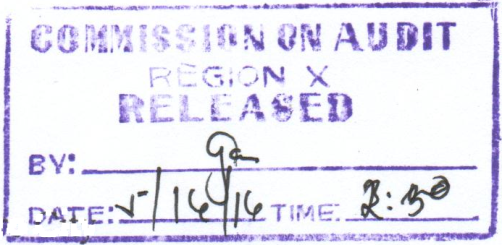 COMMISSION ON AUDIT
REGION X
RELEASED
BY:
DATE: 5/16/16 TIME: 2:30